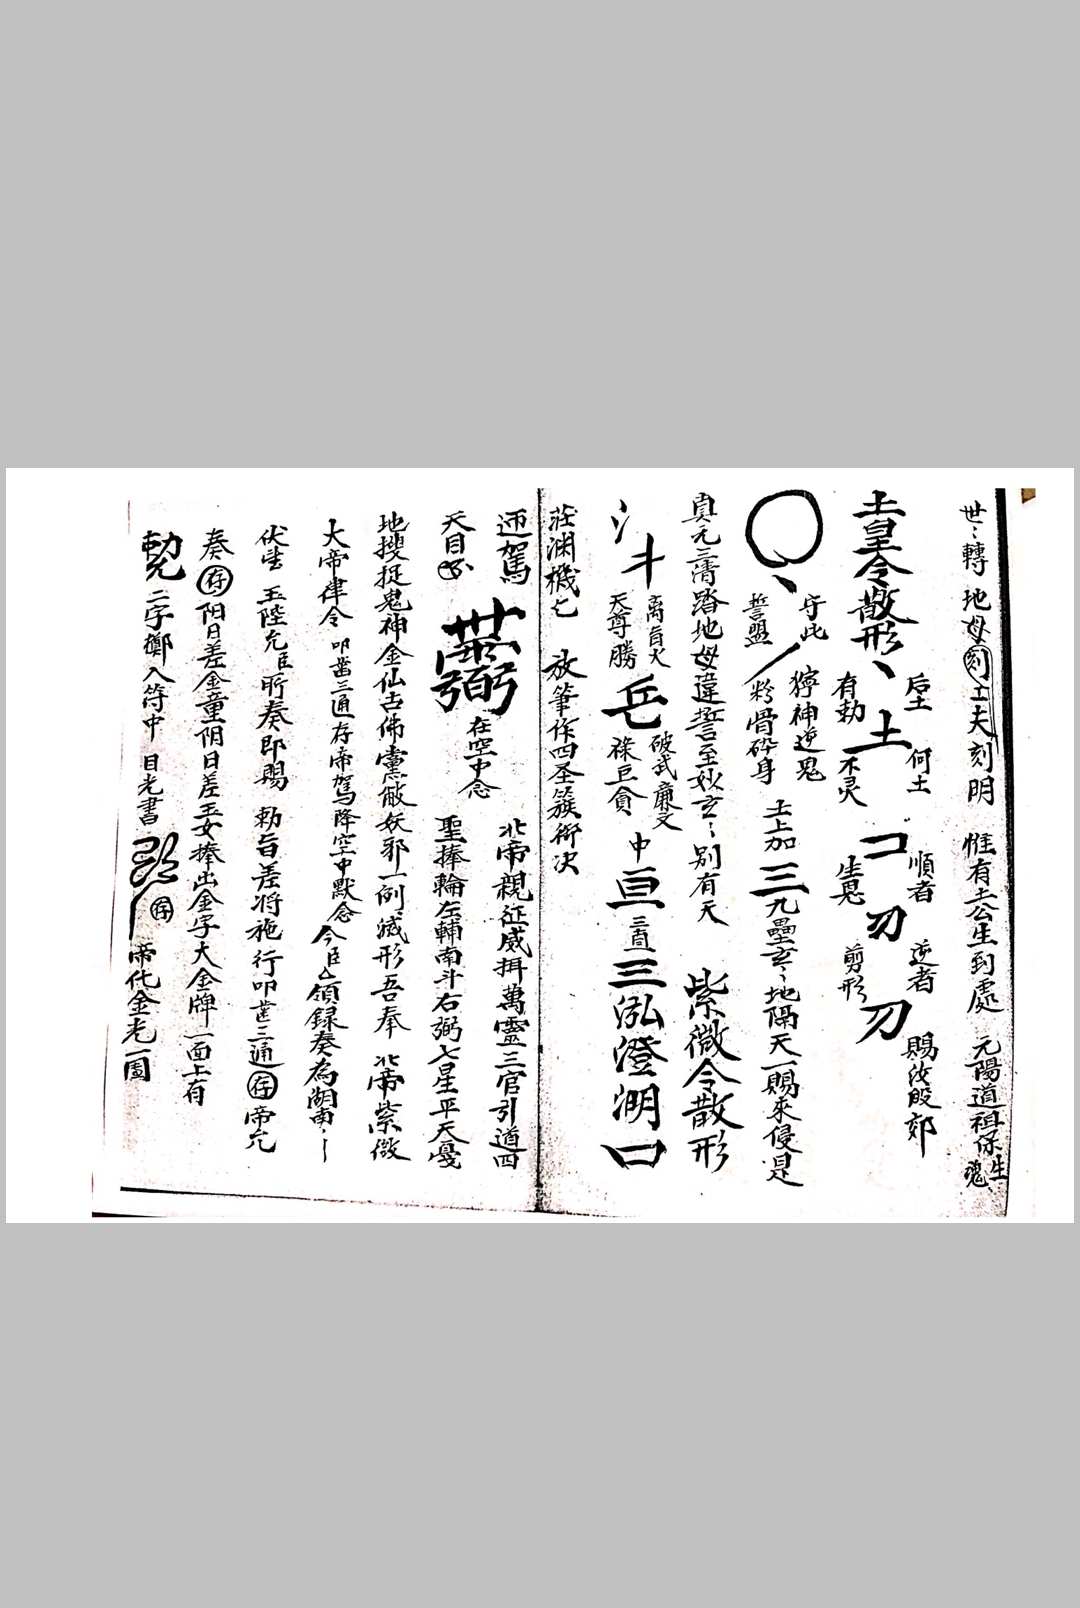 世〻轉地母刻工夫刻明 惟有土公生到處 元陽道祖保生魂
土皇令散形、
后土 有勅
土
何土 不灵
コ
順者 生恩
刃
逆者 剪形
刀
賜汝殷郊
○、
守此 誓盟
獰神逆鬼 粉骨碎身
土上加三九壘玄〻地隔天一賜來侵是
真元三清踏地母違誓至妙玄〻別有天 紫微令散形
斗
天尊勝
乓
破武廉文 祿巨貪
中亘三亘三泓澄湖口
莊渊機七 放筆作四圣簇衔决
迊駕
在空中念
北帝親征威揖萬靈三官引道四
天目
聖捧輪左輔南斗右弼七星平天憂
地搜捉鬼神金仙古佛黨敵妖邪一例滅形吾奉 北帝紫微
大帝律令 叩齒三通存帝駕降空中默念今臣厶領録奏為湖南〻
伏望 玉陛允臣所奏即賜 勅旨差将施行叩齒三通存帝允
奏存阳日差金童阴日差玉女捧出金字大金牌一面上有
二字擲入符中 目光書
存
帝化金光一圓